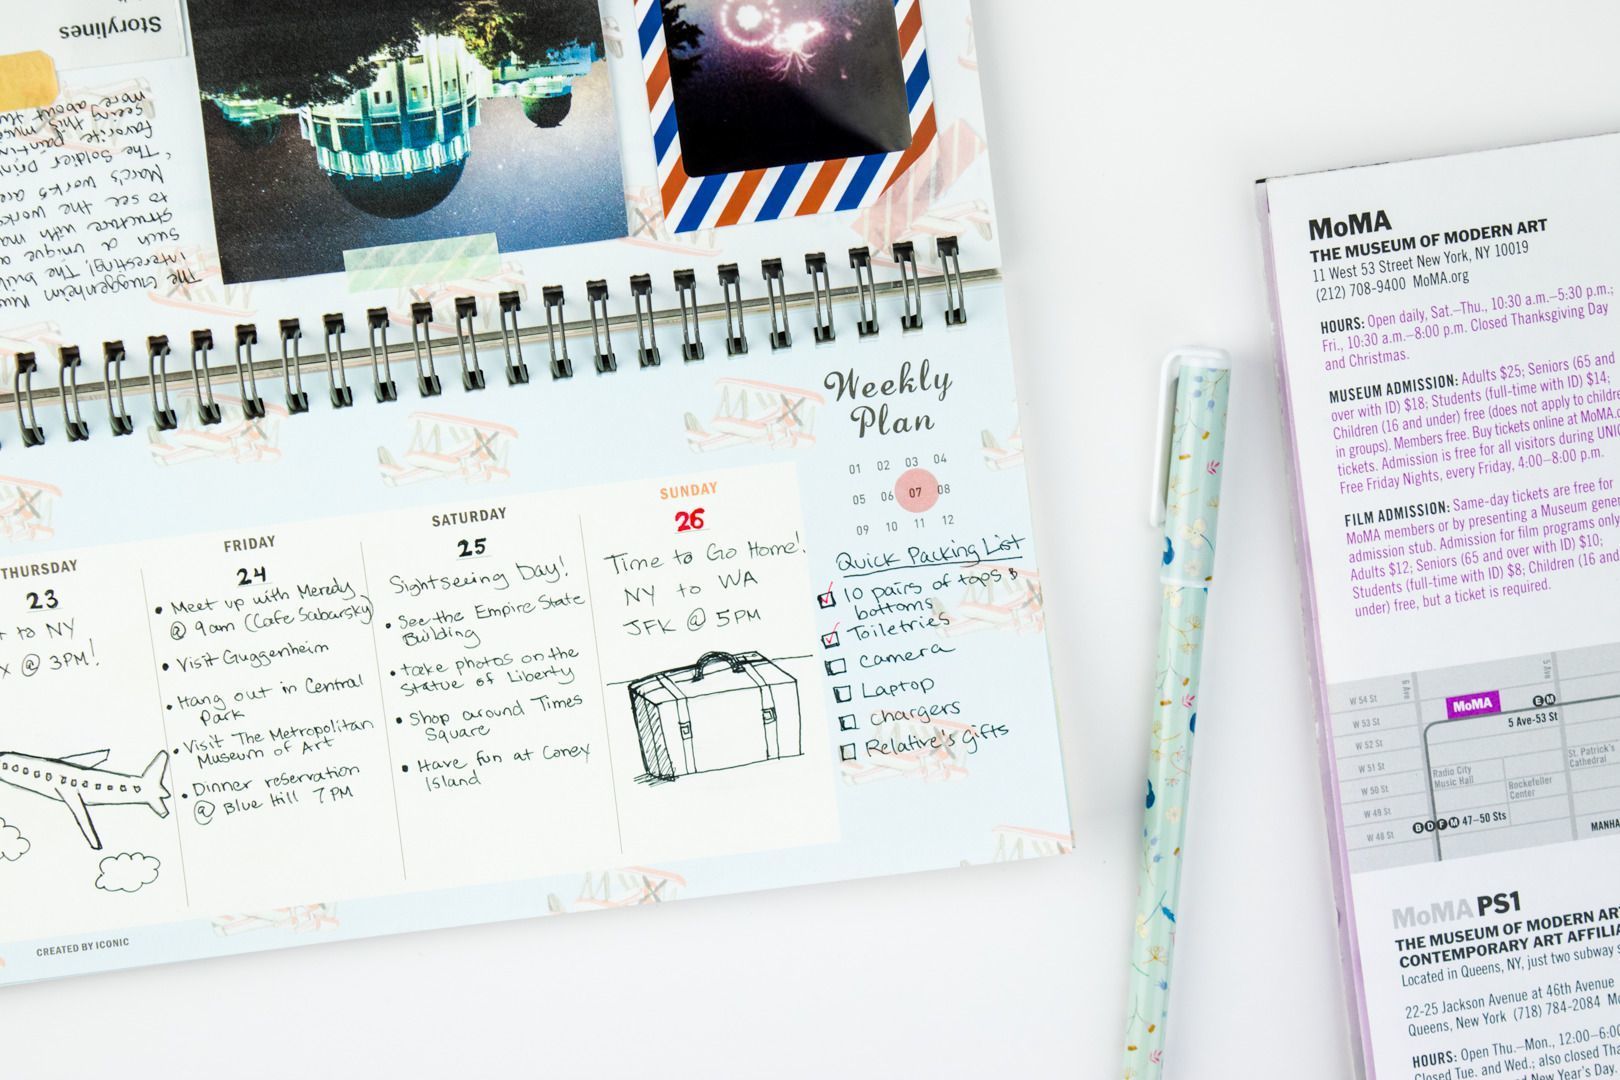 Storylines
The Guggenheim
interesting! The
such a unique
structure with
to see the works
Marc's works are
"The Soldier Drin
favorite paintin
seeing this
more about
Weekly
Plan
01 02 03 04
05 06 07 08
09 10 11 12
Quick Packing List
10 pairs of tops &
bottoms
Toiletries
camera
Laptop
chargers
Relative's gifts
THURSDAY
23
to NY
@ 3PM!
FRIDAY
24
• Meet up with Meredy
@ 9am (Cafe Sabarsky)
• Visit Guggenheim
• Hang out in Central
Park
• Visit The Metropolitan
Museum of Art
• Dinner reservation
@ Blue Hill 7PM
SATURDAY
25
Sightseeing Day!
• See the Empire State
Building
• Take photos on the
Statue of Liberty
• Shop around Times
Square
• Have fun at Coney
Island
SUNDAY
26
Time to Go Home!
NY to WA
JFK @ 5PM
CREATED BY ICONIC
MoMA
THE MUSEUM OF MODERN ART
11 West 53 Street New York, NY 10019
(212) 708-9400 MoMA.org
HOURS: Open daily, Sat.–Thu., 10:30 a.m.–5:30 p.m.;
Fri., 10:30 a.m.–8:00 p.m. Closed Thanksgiving Day
and Christmas.
MUSEUM ADMISSION: Adults $25; Seniors (65 and
over with ID) $18; Students (full-time with ID) $14;
Children (16 and under) free (does not apply to childre
in groups). Members free. Buy tickets online at MoMA.o
tickets. Admission is free for all visitors during UNIQ
Free Friday Nights, every Friday, 4:00–8:00 p.m.
FILM ADMISSION: Same-day tickets are free for
MoMA members or by presenting a Museum gener
admission stub. Admission for film programs only
Adults $12; Seniors (65 and over with ID) $10;
Students (full-time with ID) $8; Children (16 and
under) free, but a ticket is required.
6 Ave
5 Ave
W 54 St
MoMA
E M
W 53 St
5 Ave-53 St
W 52 St
St. Patrick's
Cathedral
W 51 St
Radio City
Music Hall
W 50 St
Rockefeller
Center
W 49 St
W 48 St
B D F M 47–50 Sts
MANHA
MoMA PS1
THE MUSEUM OF MODERN ART
CONTEMPORARY ART AFFILIA
Located in Queens, NY, just two subway s
22-25 Jackson Avenue at 46th Avenue
Queens, New York (718) 784-2084 Mo
HOURS: Open Thu.–Mon., 12:00–6:00
Closed Tue. and Wed.; also closed Tha
New Year's Day.